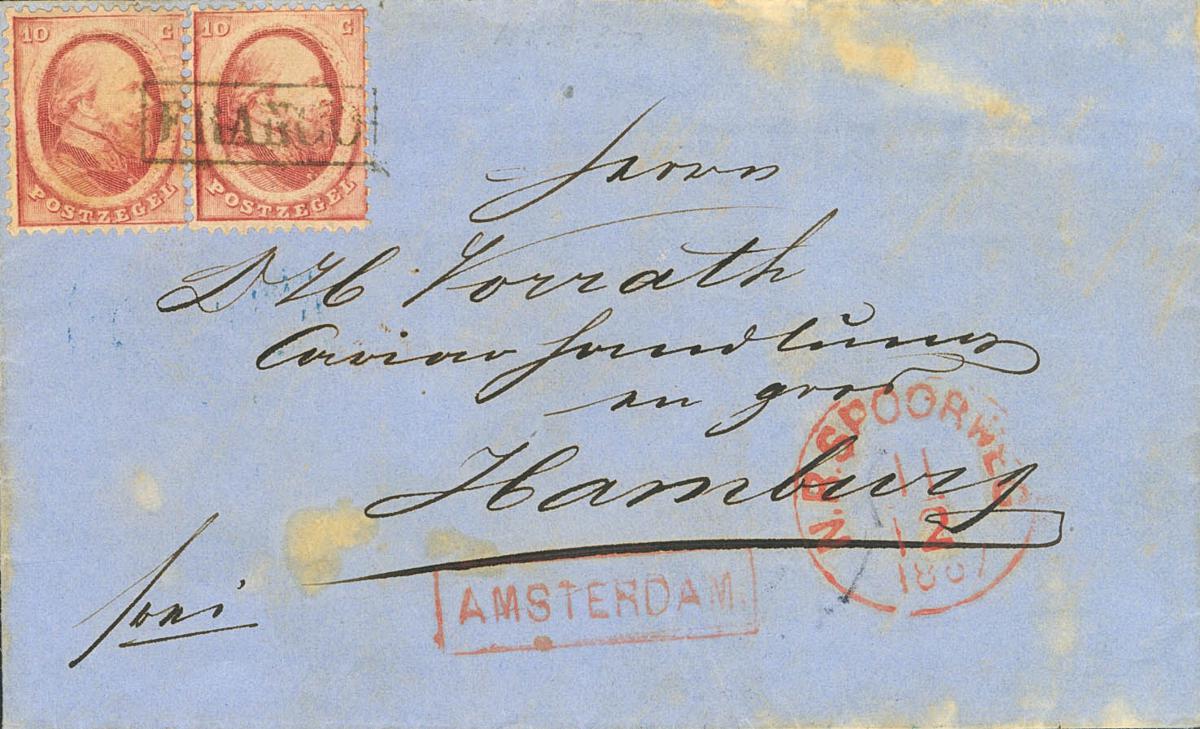 10 C
POSTZEGEL
10 C
POSTZEGEL
FRANCO
Herrn
D H Vorrath
Caviar handlung
en gros
Hamburg
frei
AMSTERDAM.
N.R.SPOORWEG
11
12
1867